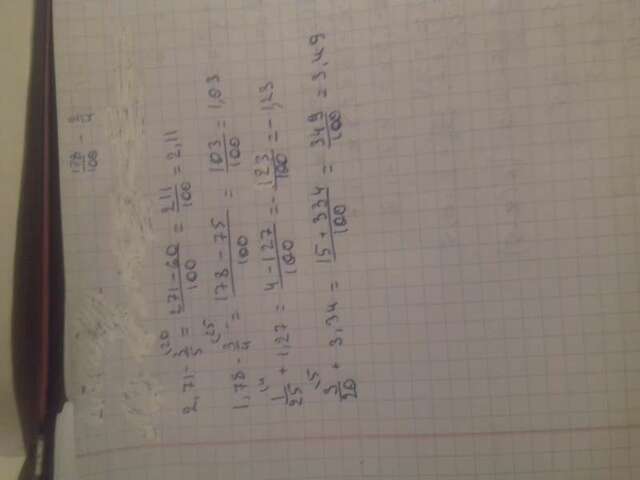 178/100 - 3/4
2,71 - 3/5 (20 = 271-60/100 = 211/100 = 2,11
1,78 - 3/4 (25 = 178-75/100 = 103/100 = 1,03
1/25 (4 + 1,27 = 4-127/100 = - 123/100 = -1,23
3/20 (5 + 3,34 = 15+334/100 = 349/100 = 3,49